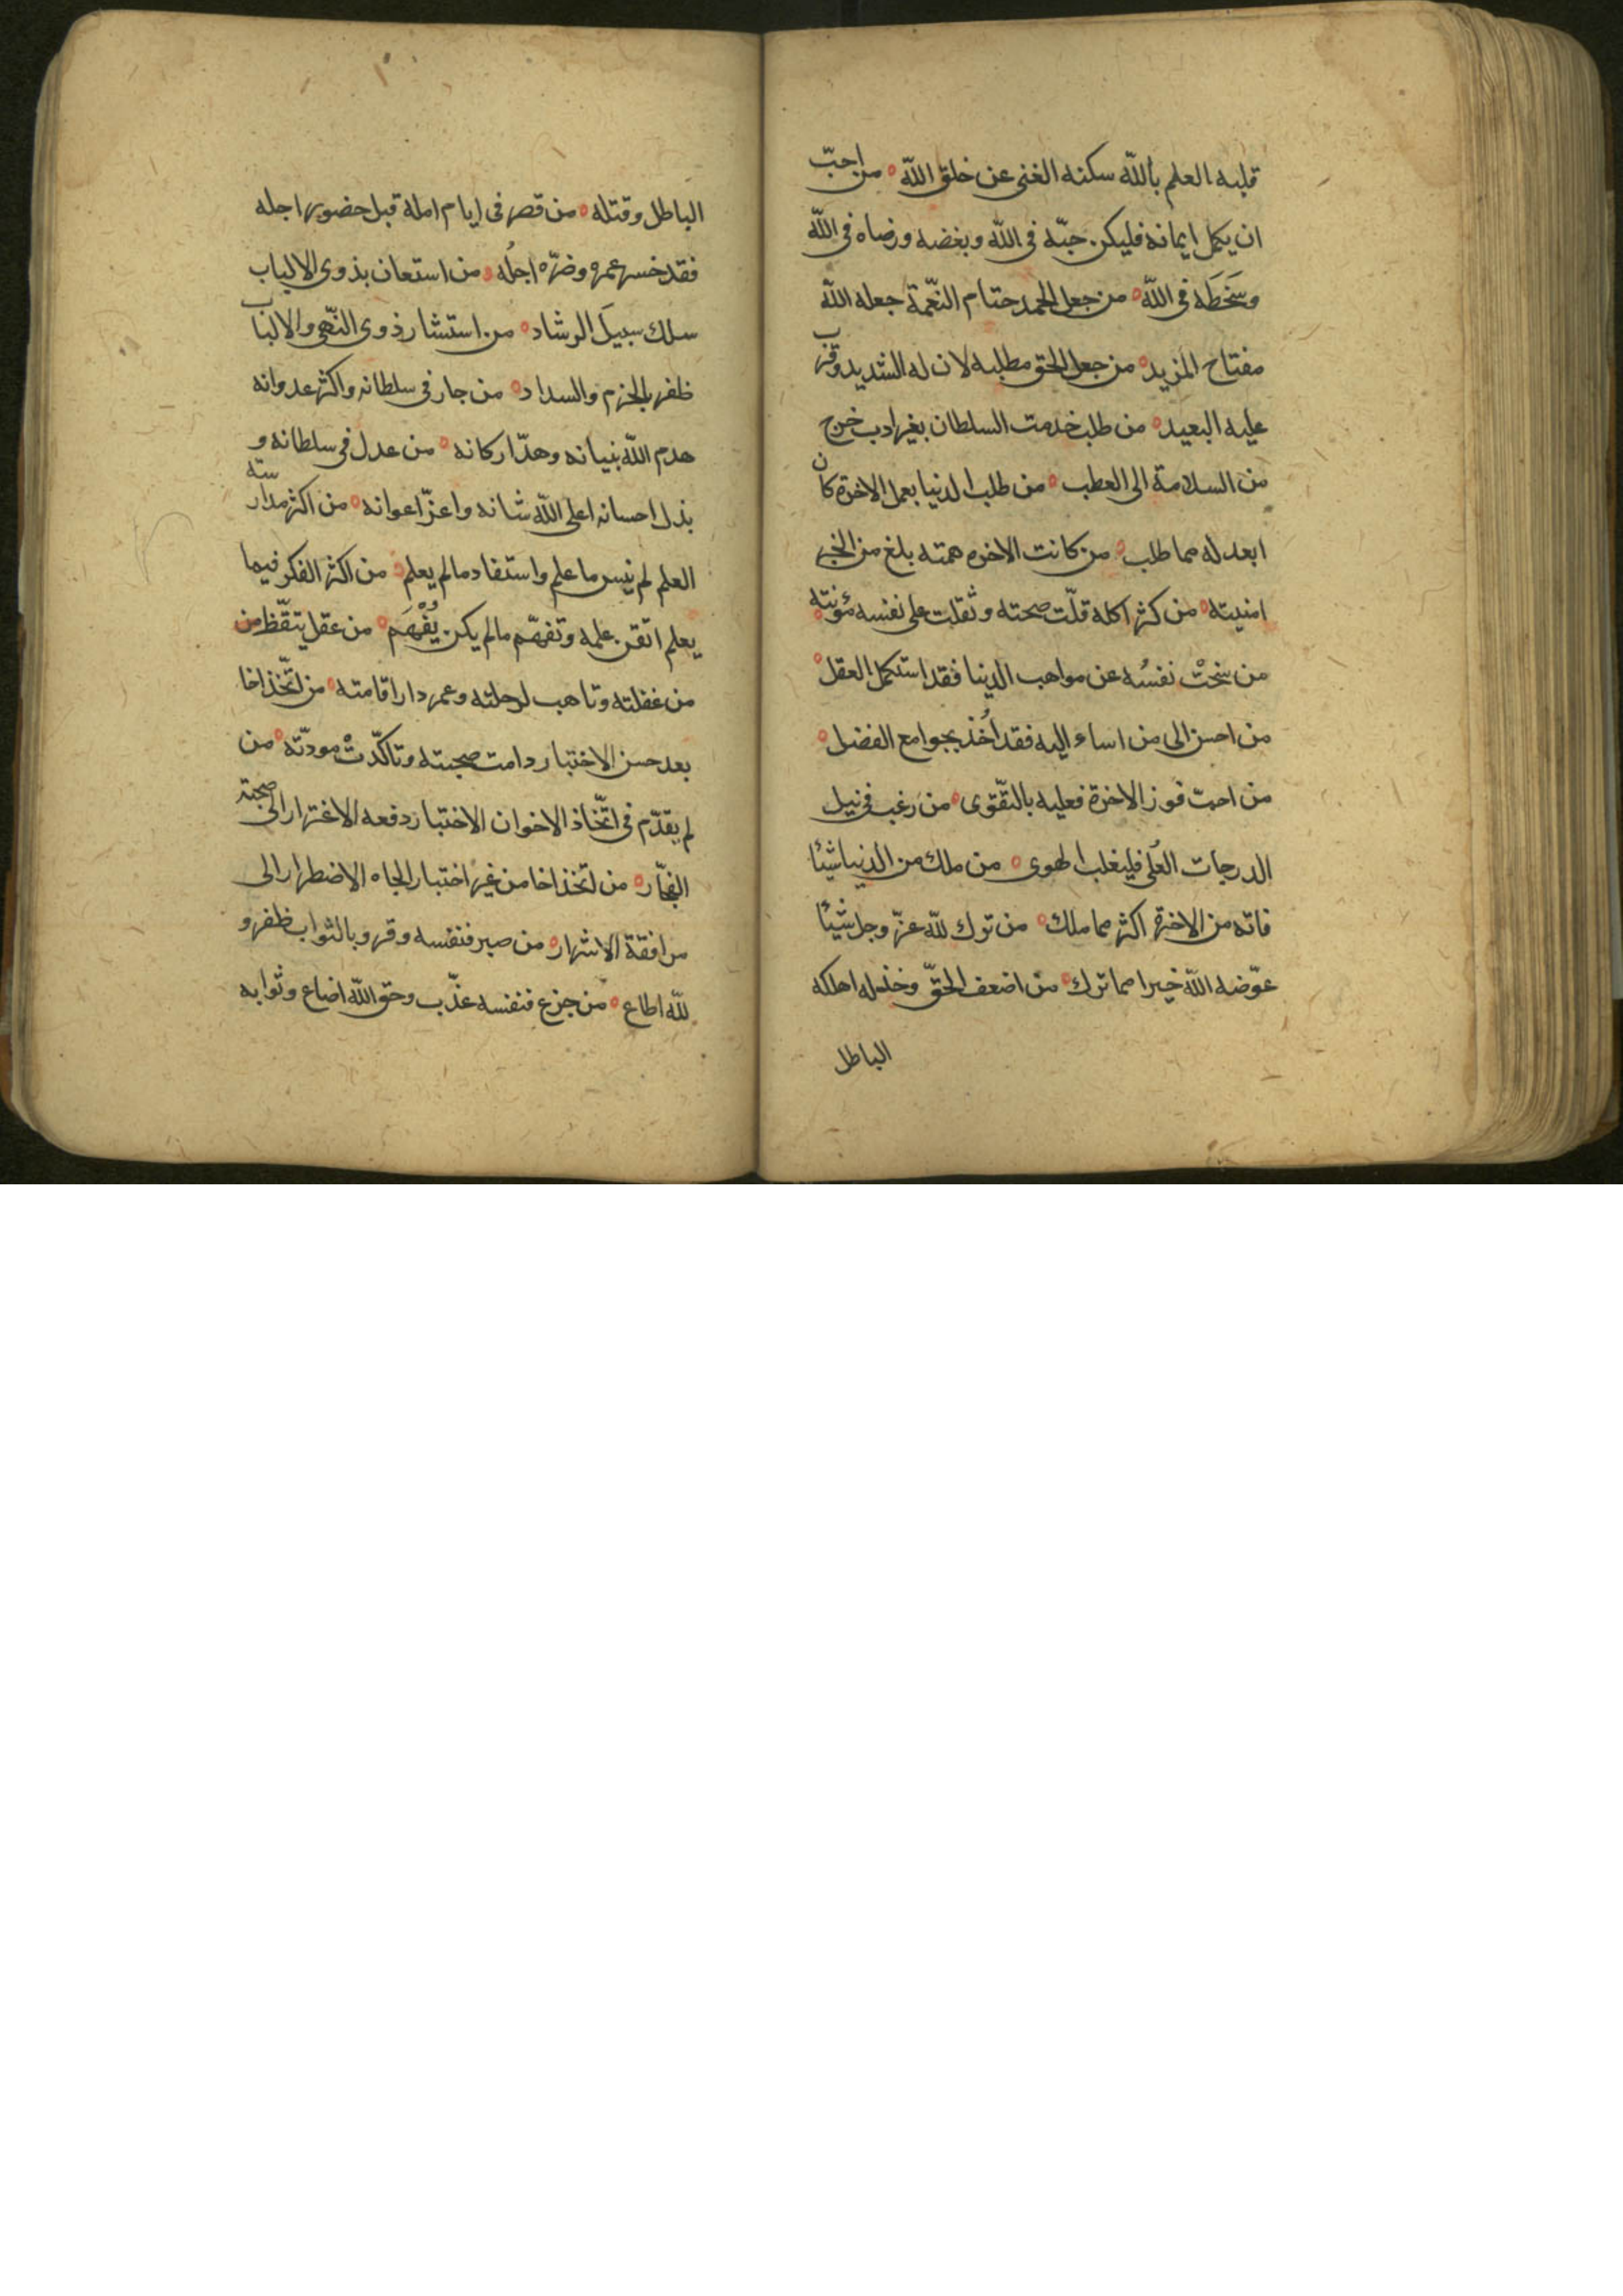 قلبه العلم بالله سكنه الغنى عن خلق الله ۰ من احبّ
ان يكمل ايمانه فليكن حبّه فى الله وبغضه ورضاه فى الله
وسَخَطَه فى الله ۰ من جعل الحمد ختام النّعمة جعله الله
مفتاح المزيد ۰ من جعل الحق مطلبه لان له الشديد وقرب
عليه البعيد ۰ من طلب خدمت السلطان بغير ادب خرج
من السلامة الى العطب ۰ من طلب الدنيا بعمل الاخرة كان
ابعد له مما طلب ۰ من كانت الاخره همته بلغ من الخير
امنيته ۰ من كثر اكله قلّت صحته وثقلت على نفسه مؤنته ۰
من سخَتْ نفسُه عن مواهب الدنيا فقد استكمل العقل ۰
من احسن الى من اساء اليه فقد اُخذ بجوامع الفضل ۰
من احبّ فوز الاخرة فعليه بالتقّوى ۰ من رغب فى نيل
الدرجات العُلى فليغلب الهوى ۰ من ملك من الدنيا شيئا
فاته من الاخرة اكثر مما ملك ۰ من ترك لله عزّ وجل شيئا
عوّضه الله خيرا مما ترك ۰ من اضعف الحقّ وخذله اهلكه
الباطل
الباطل وقتله ۰ من قصر فى ايام امله قبل حضور اجله
فقد خسر عمره وضرّه اجلُه ۰ من استعان بذوى الالباب
سلك سبيلَ الرشاد ۰ من استشار ذوى النّهى والالباب
ظفر بالحزم والسداد ۰ من جار فى سلطانه واكثر عدوانه
هدم الله بنيانه وهدّ اركانه ۰ من عدل فى سلطانه و
بذل احسانه اعلى الله شانه واعزّ اعوانه ۰ من اكثر مدارسته
العلم لم ينس ما علم واستفاد مالم يعلم ۰ من اكثر الفكر فيما
يعلم اتقن علمه وتفهّم مالم يكن يُفْهَم ۰ من عقل يتقّظ من
من غفلته وتاهب لرحلته وعمر دار اقامته ۰ من اتّخذ اخا
بعد حسن الاختبار دامت صحبته وتاكدّتْ مودّته ۰ من
لم يقدّم فى اتّخاذ الاخوان الاختبار دفعه الاغترار الى صحبة
الفجّار ۰ من اتّخذ اخا من غير اختبار الجاه الاضطرار الى
مرافقة الاشرار ۰ من صبر فنفسه وقر وبالثواب ظفر و
لله اطاع ۰ من جزع فنفسه عذّب وحق الله اضاع وثوابه